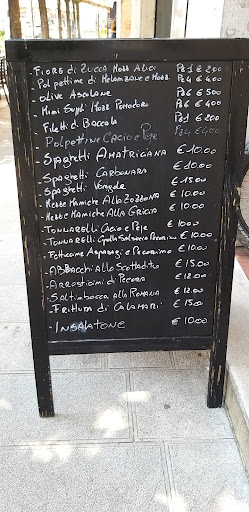 Fiore di Zucca Mozz Alici Pz1 € 200
Polpettine di Melanzane e Mozz. Pz4 € 400
Olive Ascolane Pz6 € 500
Mini Supplì Mozz Pomodoro Pz6 € 400
Filetti di Baccalà Pz1 € 200
Polpettine Cacio e Pepe Pz4 € 400
Spaghetti Amatrigana € 10.00
Spaghetti Carbonara € 10.00
Spaghetti Vongole € 15.00
Mezze Maniche Alla Zozzona € 10.00
Mezze Maniche Alla Gricia € 10.00
Tonnarelli Cacio e Pepe € 1000
Tonnarelli Salsiccia Pecorino € 10.00
Fettuccine Asparagi e Pecorino € 10.00
Abbacchio allo Scottadito € 15.00
Arrosticini di Pecora € 12.00
Saltimbocca alla Romana € 12.00
Frittura di Calamari € 15.00
Insalatone € 10.00